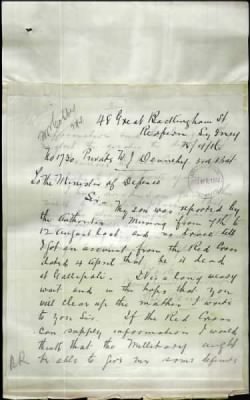 48 Great Buckingham St
Redfern Sydney
No 1730. Private W J Dennehy
To the Minister of Defence
Sir – My son was reported by
the authorities Missing from 7th to
12 August last. and no trace till
I got an account from the Red Cross
dated 4 April that he is dead
at Gallipoli. It is a long weary
wait and in the hopes that you
will clear up the matter I write
to you Sir. If the Red Cross
can supply information I would
think that the Military ought
to be able to give my some definite